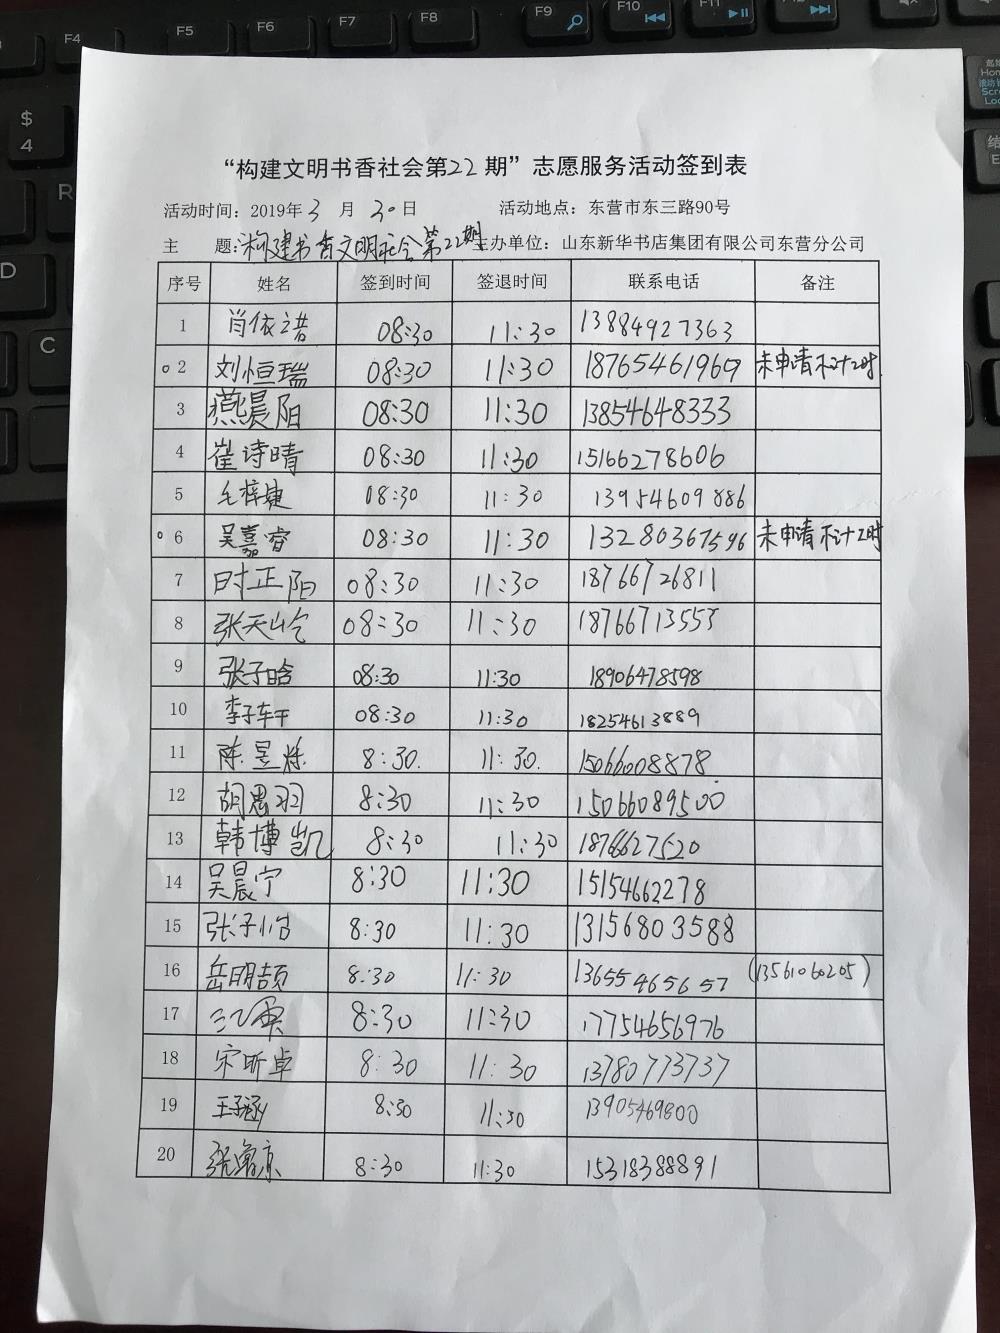 “构建文明书香社会第22期”志愿服务活动签到表
活动时间：2019年3月30日 活动地点：东营市东三路90号
主 题：构建书香文明社会第22期 主办单位：山东新华书店集团有限公司东营分公司
序号 姓名 签到时间 签退时间 联系电话 备注
1 肖依诺 08:30 11:30 13884927363
2 刘恒瑞 08:30 11:30 18765461969 未申请不计工时
3 燕晨阳 08:30 11:30 13854648333
4 崔诗晴 08:30 11:30 15166278606
5 毛梓婕 08:30 11:30 13954609886
6 吴嘉睿 08:30 11:30 13280367596 未申请不计工时
7 时正阳 08:30 11:30 18766726811
8 张天屹 08:30 11:30 18766713553
9 张子晗 08:30 11:30 18906478598
10 李子轩 08:30 11:30 18254613889
11 陈昱烁 8:30. 11:30. 15066008878
12 胡思羽 8:30 11:30 15066089500
13 韩博凯 8:30 11:30 1876627520
14 吴晨宁 8:30 11:30 15154662278
15 张子怡 8:30 11:30 13156803588
16 岳明颉 8:30 11:30 13655465657 (13561060205)
17 8:30 11:30 17754656976
18 宋昕卓 8:30 11:30 13780773737
19 王子涵 8:30 11:30 13905469800
20 张瀚京 8:30 11:30 15318388891